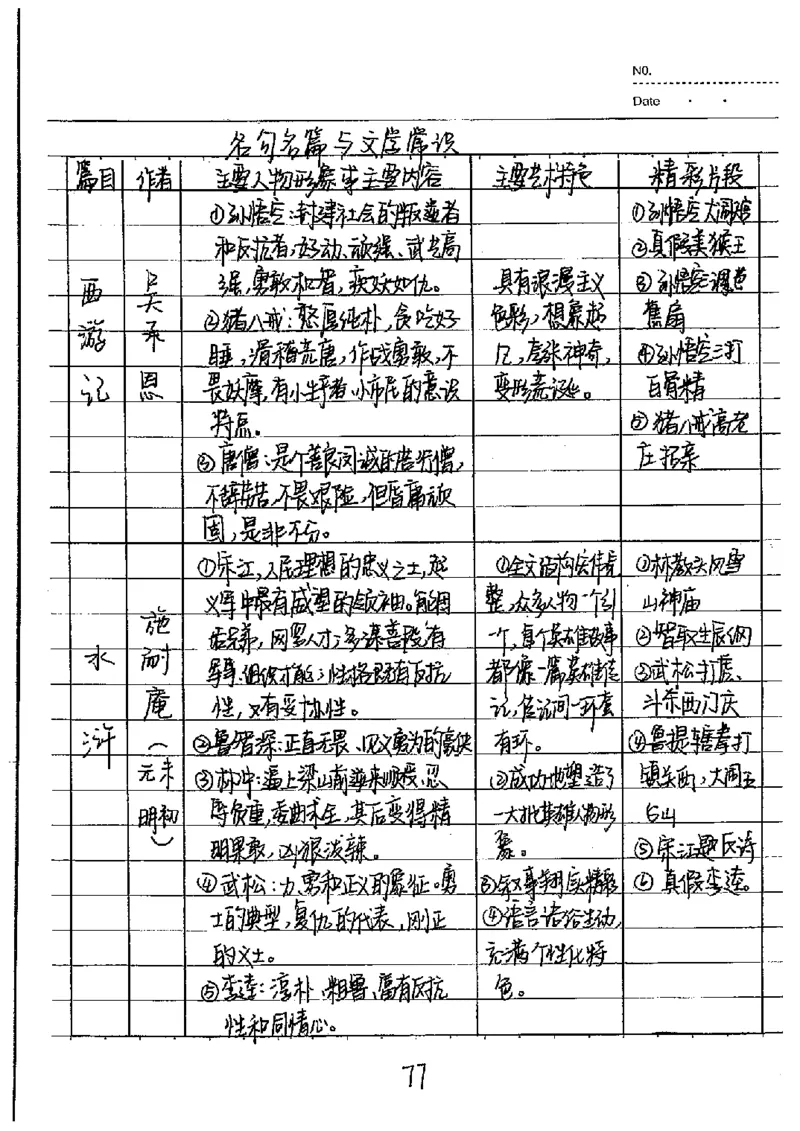 NO.
Date
名句名篇与文学常识
篇目 作者 主要人物形象或主要内容 主要艺术特色 精彩片段
西游记
吴承恩
①孙悟空:封建社会的叛逆者
和反抗者,好动、顽强、武艺高
强,勇敢机智,疾妖如仇。
②猪八戒:憨厚纯朴,贪吃好
睡,滑稽荒唐,作战勇敢,不
畏妖魔,有小生产者、小市民的意识
特点。
③唐僧:是个善良闵诚的苦行僧,
不辞劳苦,不畏艰险,但昏庸顽
固,是非不分。
具有浪漫主义
色彩,想象超
凡,离奇神奇,
变形荒诞。
①孙悟空大闹天宫
②真假美猴王
③孙悟空调芭
蕉扇
④孙悟空三打
白骨精
⑤猪八戒高老
庄招亲
水浒
施耐庵(元末明初)
①宋江,人民理想的忠义之士,起
义军中最有威望的领袖。能团
结兄弟,网罗人才;多谋善断,有
领导、组织才能;性格既有反抗
性,又有妥协性。
②鲁智深:正直无畏、见义勇为的豪侠
③林冲:逼上梁山前逆来顺受,忍
辱负重,委曲求全,其后变得精
明果敢,凶狠泼辣。
④武松:力、勇和正义的象征。勇
士的典型,复仇的代表,刚正
的义士。
⑤李逵:淳朴、粗鲁、富有反抗
性和同情心。
①全文结构宏伟完
整,众多人物一个引
一个,每个英雄故事
都像一篇英雄传
记,传记间一环套
有环。
②成功地塑造了
一大批英雄人物形
象。
③叙事翔实精彩
④语言语俗生动,
充满个性化特
色。
①林教头风雪
山神庙
②智取生辰纲
③武松打虎、
斗杀西门庆
④鲁提辖拳打
镇关西,大闹五
台山
⑤宋江题反诗
⑥真假李逵。
77